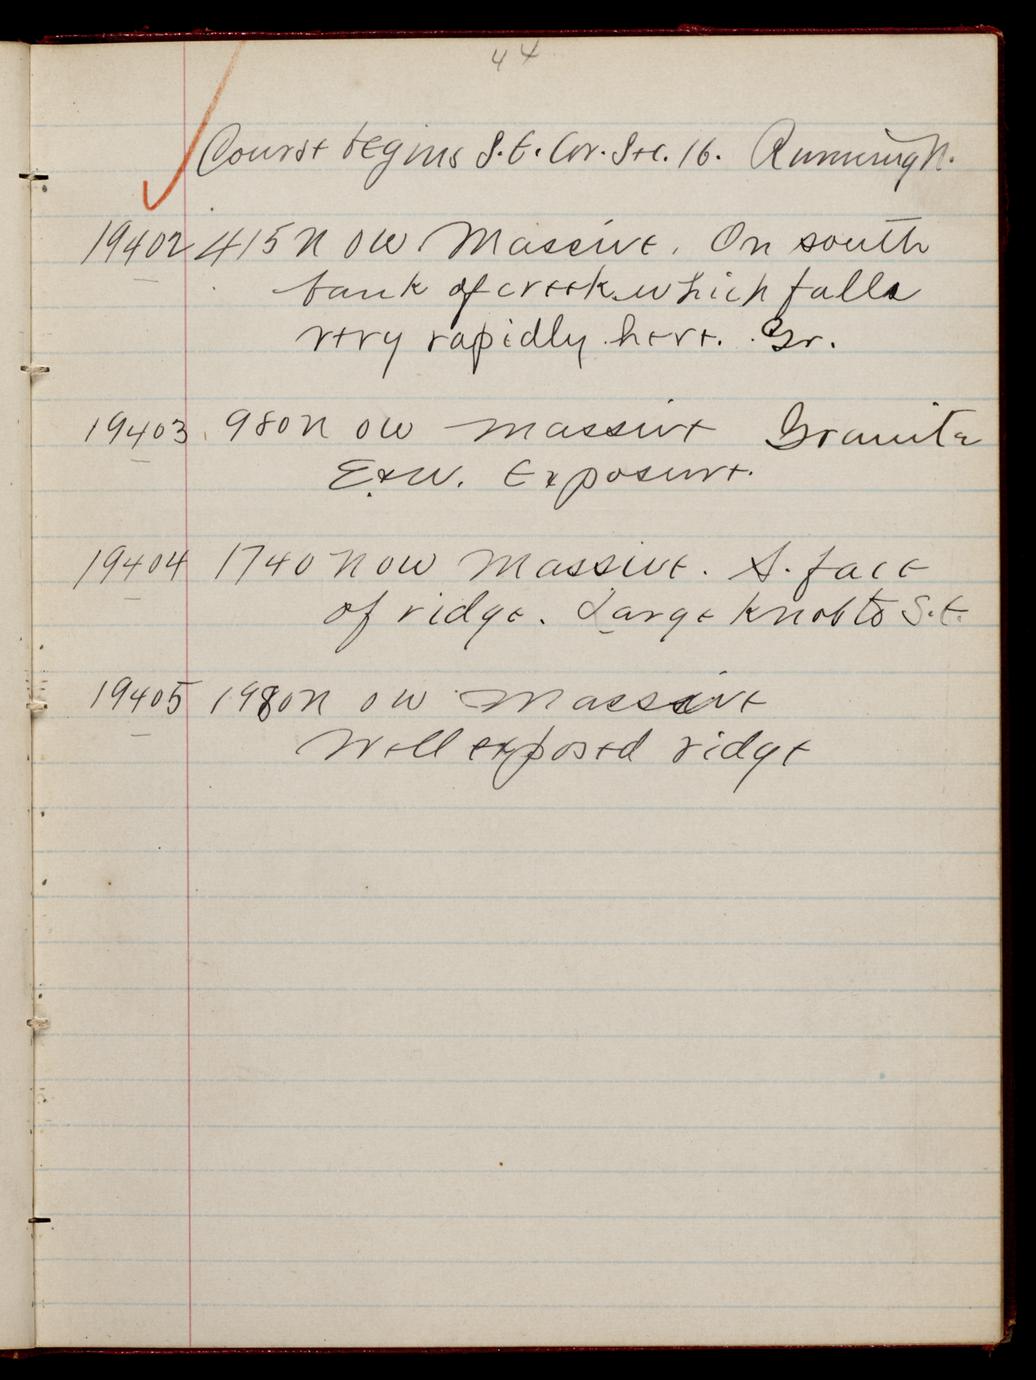 44
Course begins S.E. Cor. Sec. 16. Running N.
19402 415 N 0 W Massive. On south
bank of creek which falls
very rapidly here. Gr.
19403 980 N 0 W massive Granite
E & W. Exposure.
19404 1740 N 0 W Massive. S. face
of ridge. Large knob to S.E.
19405 1980 N 0 W Massive
Well exposed ridge